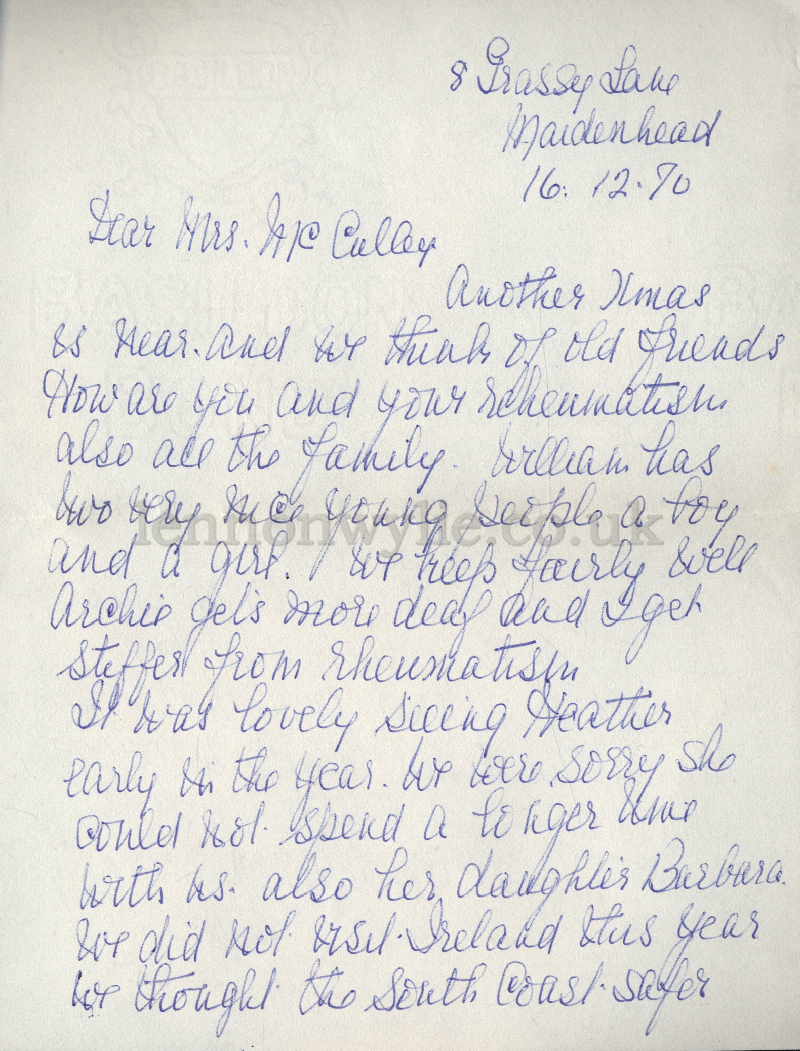 8 Grassy Lane
Maidenhead
16. 12. 70
Dear Mrs. McCulley
Another Xmas
is near. and we think of old friends
How are you and your rheumatism
also all the family. William has
two very nice young people a boy
and a girl. We keep fairly well
Archie gets more deaf and I get
stiffer from rheumatism
It was lovely seeing Heather
early in the year. we were sorry she
could not spend a longer time
with us. also her daughter Barbara.
We did not visit Ireland this year
we thought the South Coast safer
lennonwylie.co.uk